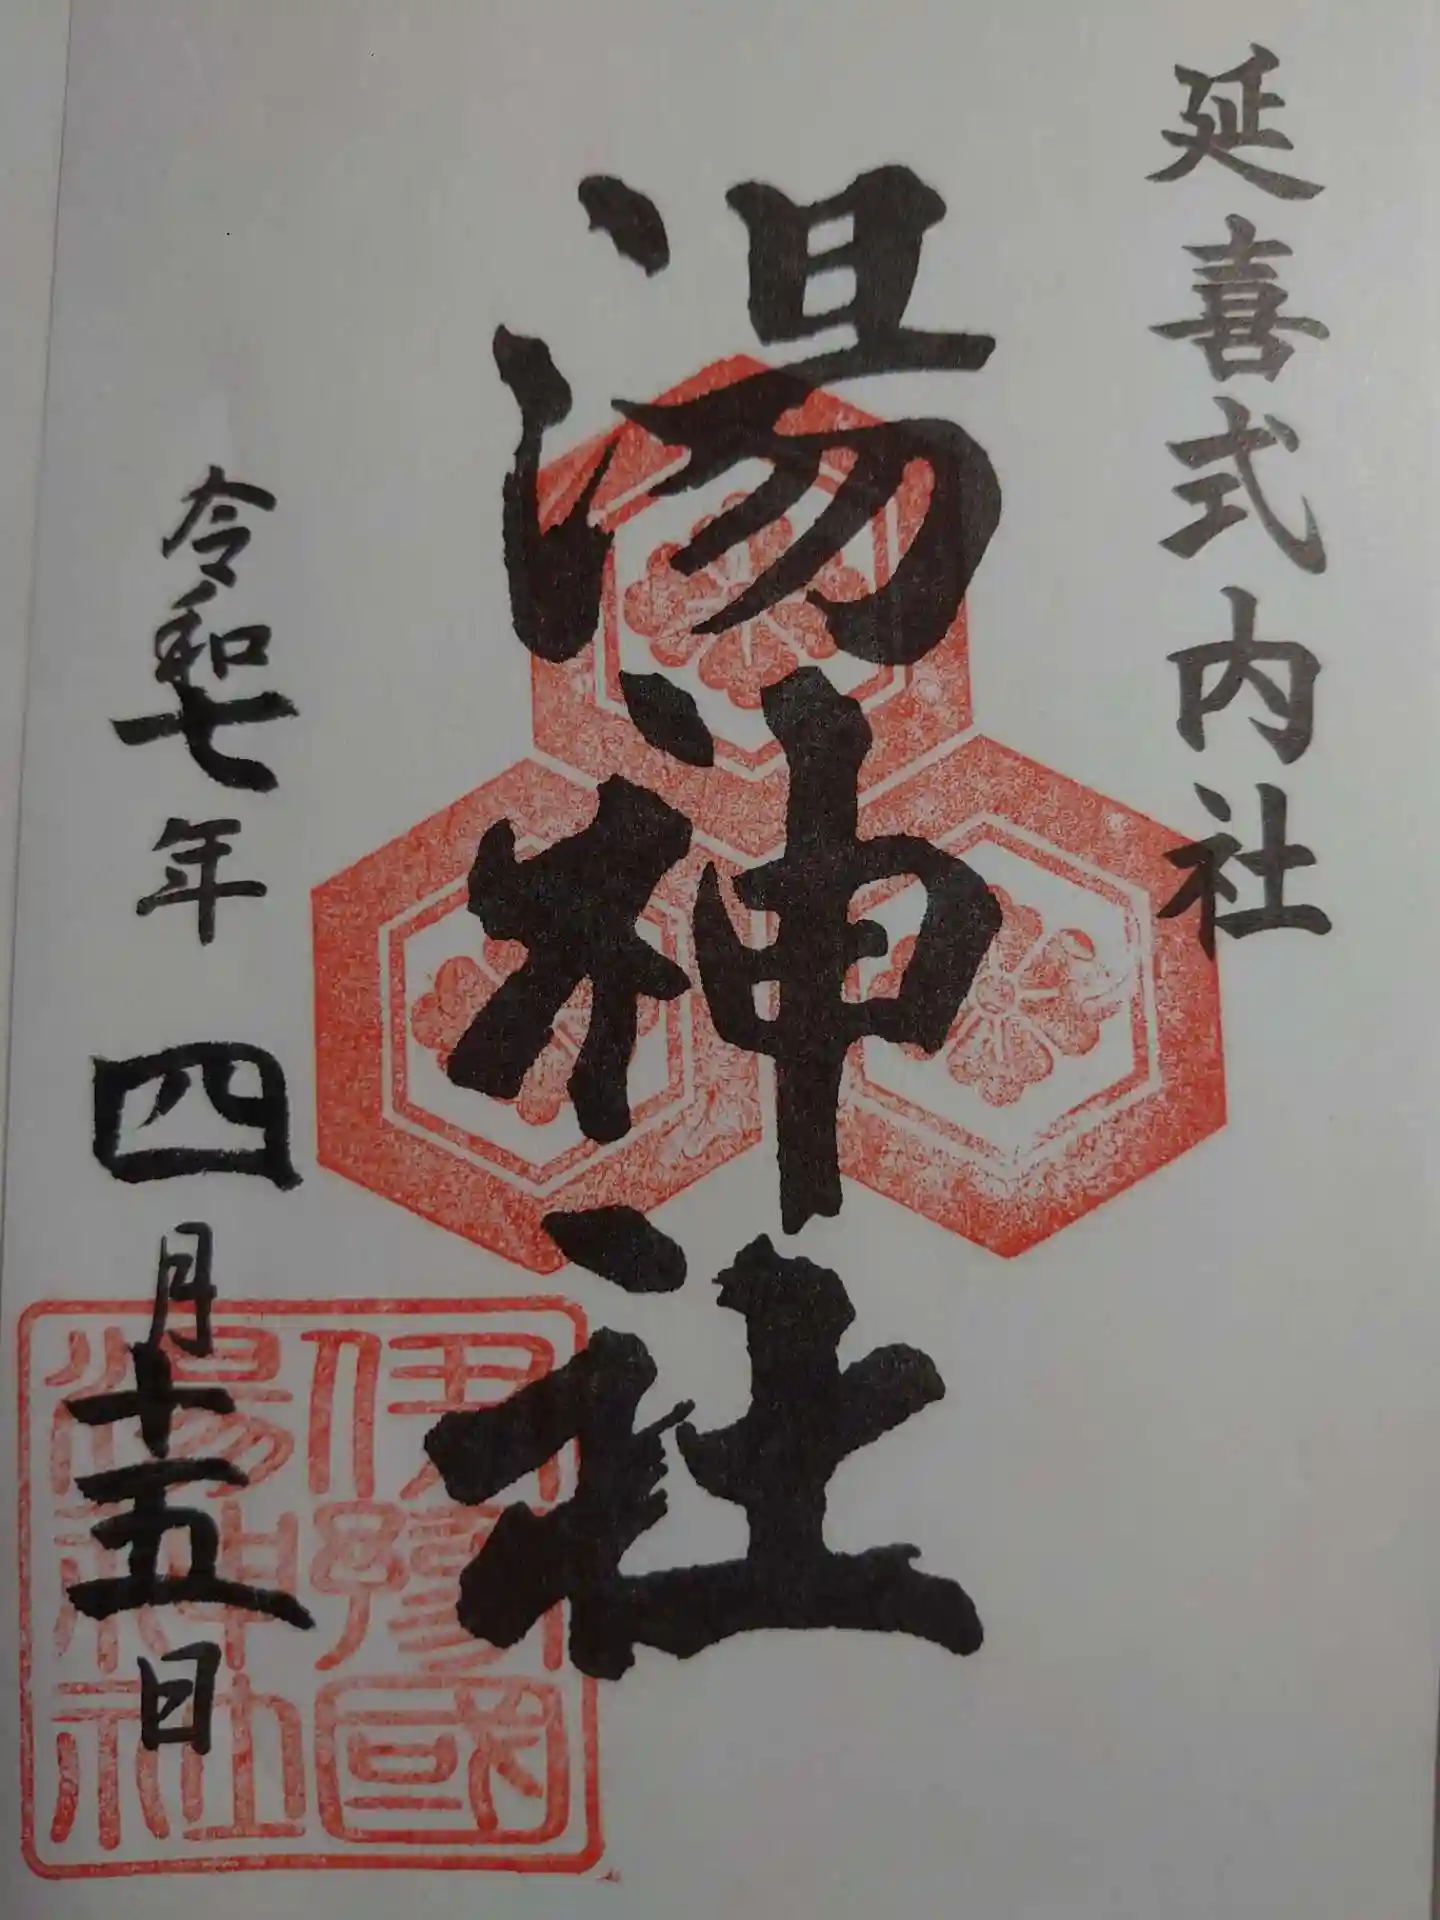 延喜式内社
湯神社
令和七年四月十五日
伊豫國
湯神社